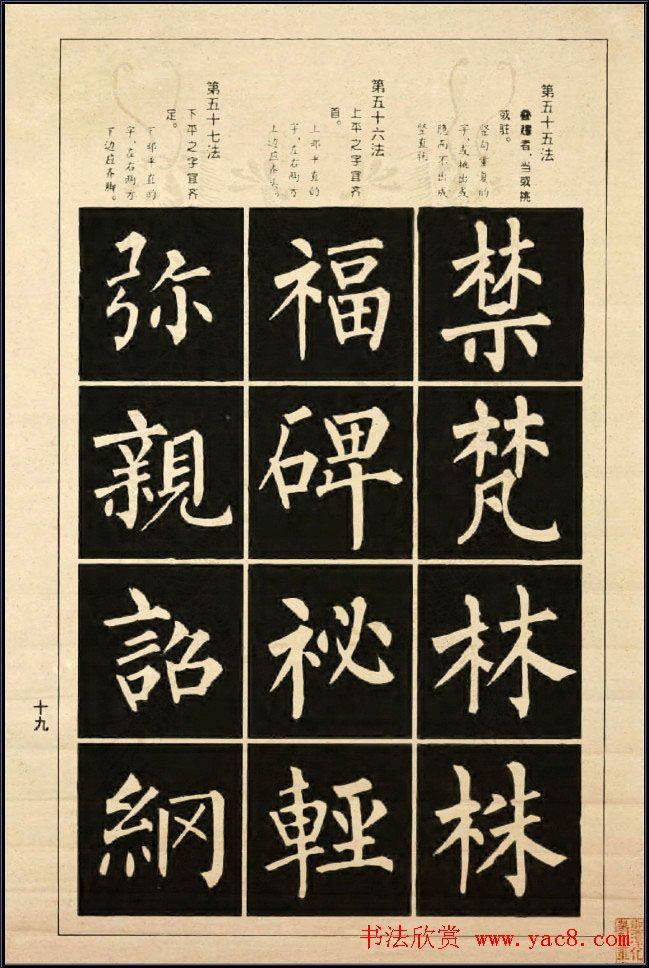 第五十五法
叠趯者，当或挑
或驻。
竖勾重复的
字，或挑出或
隐而不出或
竖直
禁
梵
林
株
第五十六法
上平之字宜齐
首。
上部平直的
字，左右两方
上边应齐头。
福
碑
祕
輕
第五十七法
下平之字宜齐
足。
下部平直的
字，左右两方
下边应齐脚。
弥
親
詔
綱
十九
书法欣赏 www.yac8.com